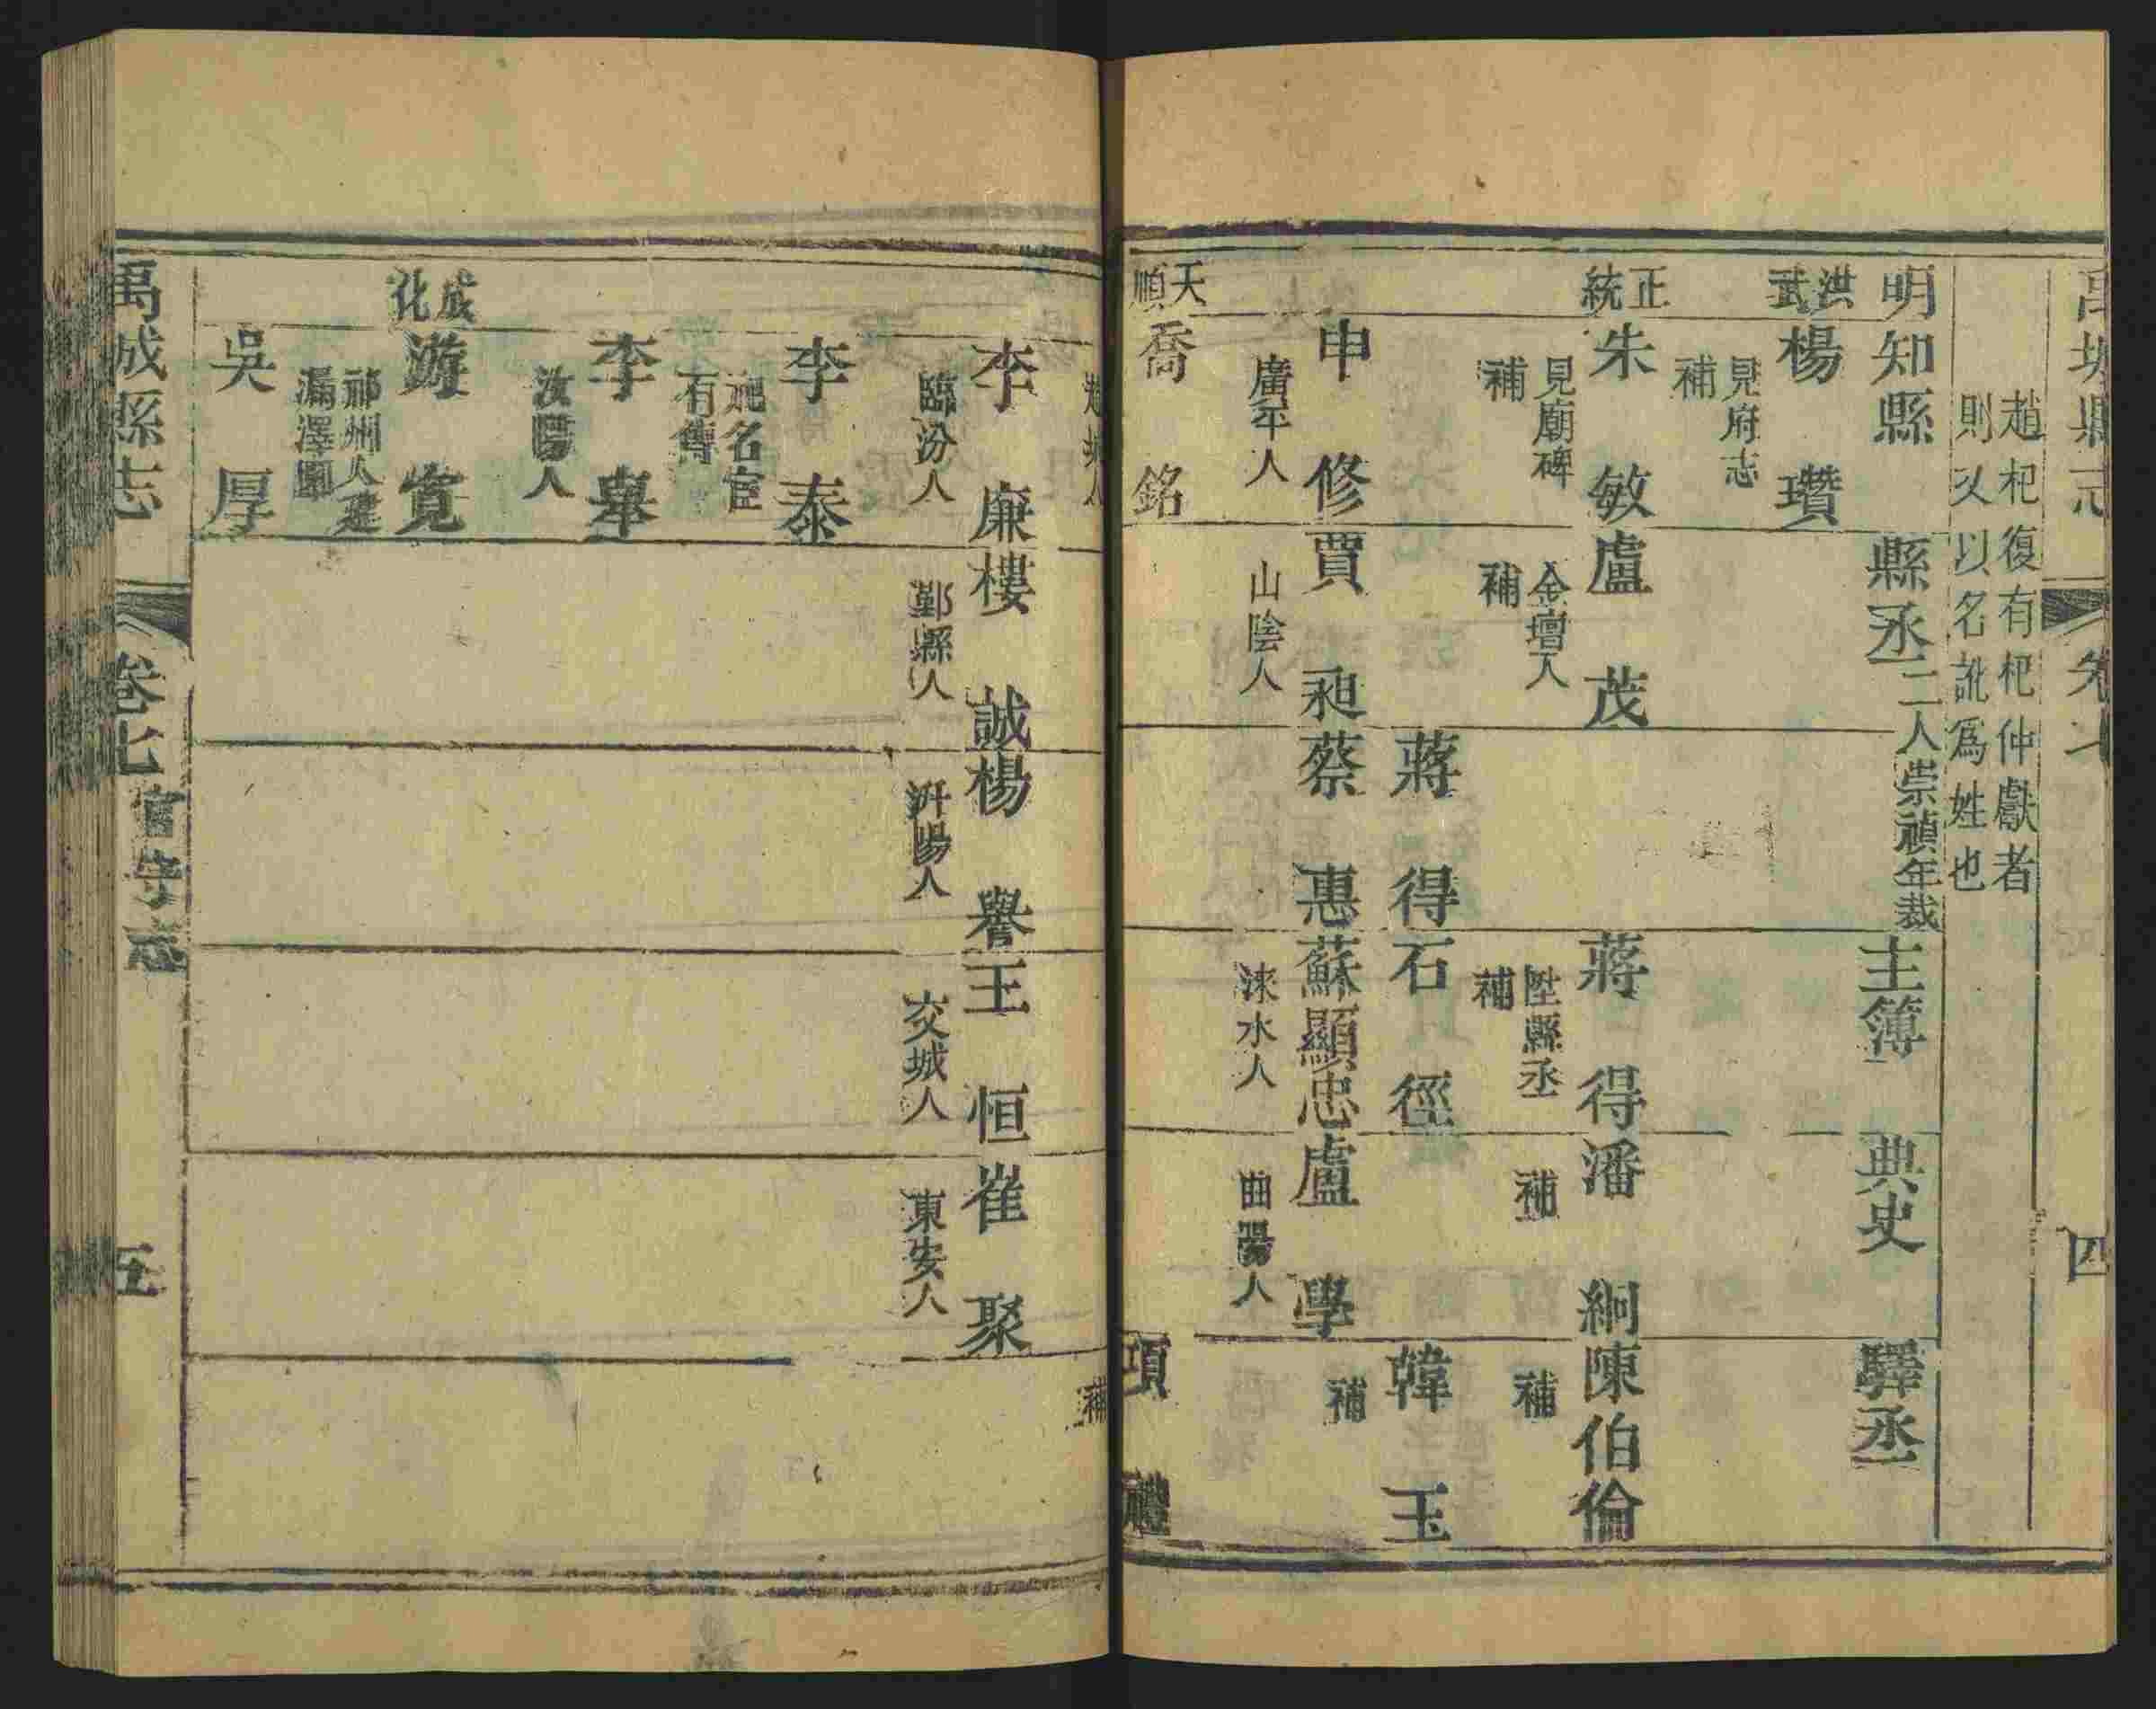 禹城縣志
卷七
四
趙杞復有杞仲獻者
則又以名訛爲姓也
明知縣
縣丞二人崇禎年裁
主簿
典史
驛丞
洪武
楊瓚
見府志
補
正統
朱敏
盧茂
蔣得
潘絅
陳伯倫
見廟碑
補
金壇人
補
陞縣丞
補
補
補
蔣得
石徑
韓玉
申修
賈昶
蔡惠
蘇顯忠
盧學
補
廣平人
山陰人
淶水人
曲陽人
天順
喬銘
項禮
補
李廉
樓誠
楊譽
王恒
崔聚
臨汾人
鄞縣人
汧陽人
交城人
東安人
李泰
祀名宦
有傳
李舉
汝陽人
成化
游寛
祁州人建
漏澤園
吳厚
禹城縣志
卷七
官守志
五